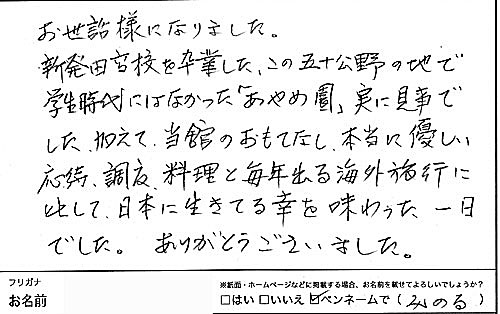 お世話様になりました。
新発田高校を卒業した、この五十公野の地で
学生時代にはなかった「あやめ園」実に見事で
した。加えて、当館のおもてなし、本当に優しい
応待、調度、料理と毎年出る海外旅行に
比して、日本に生きてる幸を味わった一日
でした。ありがとうございました。
フリガナ
お名前
※紙面・ホームページなどに掲載する場合、お名前を載せてよろしいでしょうか？
□はい □いいえ ☑ペンネームで（みのる）